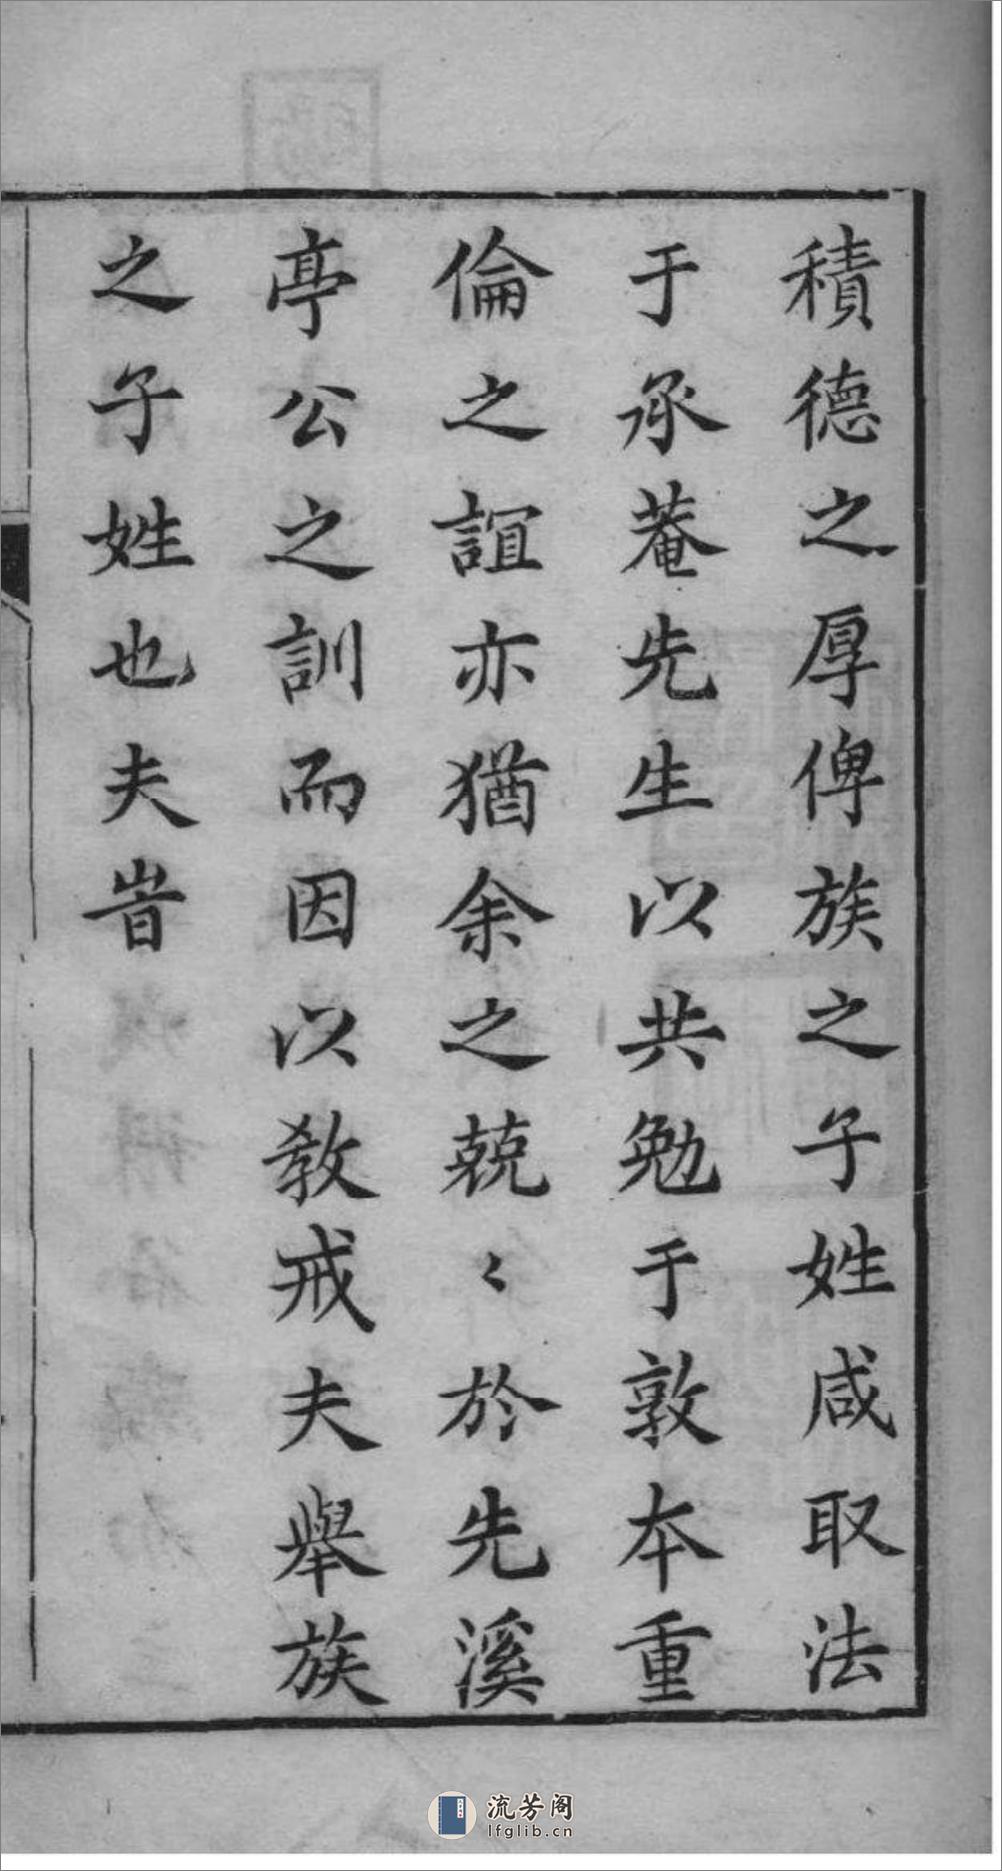 積德之厚俾族之子姓咸取法
于承菴先生以共勉于敦本重
倫之誼亦猶余之兢〻於先溪
亭公之訓而因以教戒夫舉族
之子姓也夫旹
流芳阁
lfglib.cn